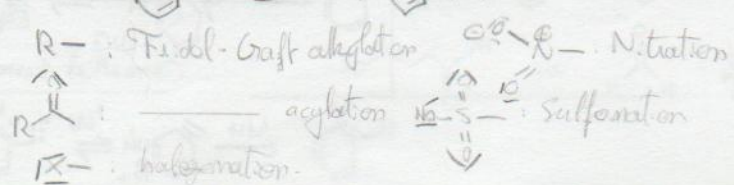 R— : Fridol-Craft alkylation
⊖O N⊕ — : Nitration
O
R : ———— acylation
HO-S- : Sulfonation
O
O
X— : halogenation.